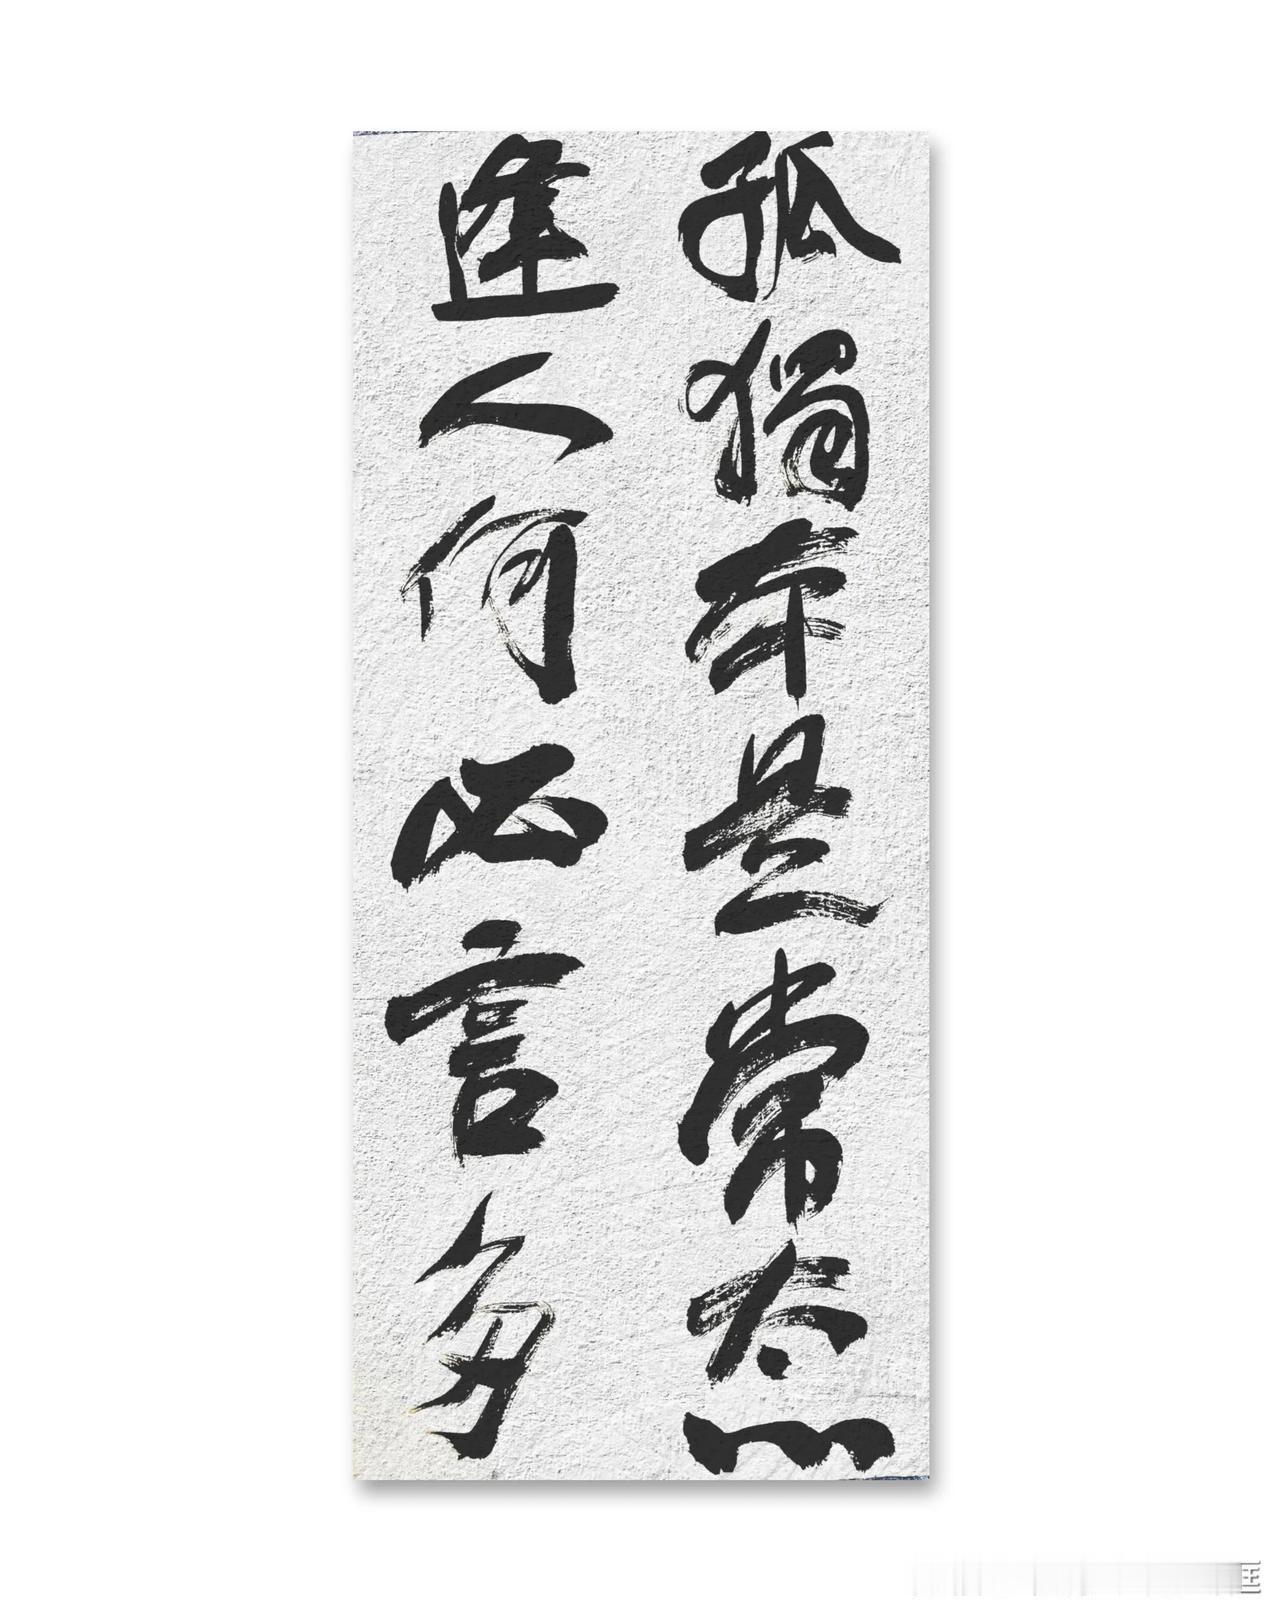 孤獨本是常态
逢人何必言多